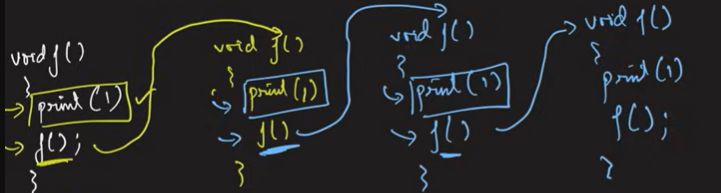 void f()
{
print (1)
f();
}
void f()
{
print(1)
f()
}
void f()
{
print(1)
f()
}
void f()
{
print(1)
f();
}